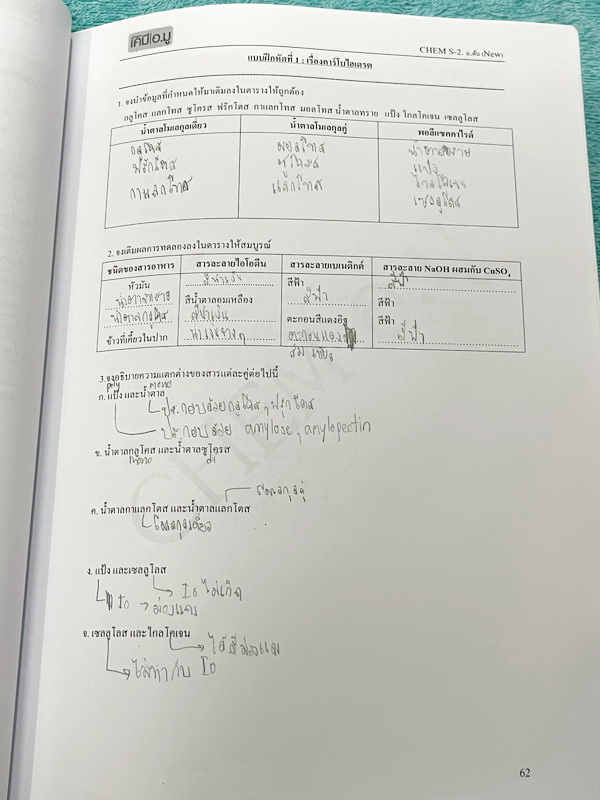 เคมีอ.มู
CHEM S-2. ม.ต้น (New)
แบบฝึกหัดที่ 1 : เรื่องคาร์โบไฮเดรต
1. จงนำข้อมูลที่กำหนดให้มาเติมลงในตารางให้ถูกต้อง
กลูโคส แลกโทส ซูโครส ฟรักโตส กาแลกโทส มอลโทส น้ำตาลทราย แป้ง ไกลโคเจน เซลลูโลส
น้ำตาลโมเลกุลเดี่ยว น้ำตาลโมเลกุลคู่ พอลีแซคคาไรด์
กลูโคส มอลโทส น้ำตาลทราย
ฟรักโทส ซูโครส แป้ง
กาแลกโทส แลกโทส ไกลโคเจน
เซลลูโลส
2. จงเติมผลการทดลองลงในตารางให้สมบูรณ์
ชนิดของสารอาหาร สารละลายไอโอดีน สารละลายเบเนดิกต์ สารละลาย NaOH ผสมกับ CuSO4
หัวมัน สีน้ำเงิน สีฟ้า สีฟ้า
น้ำตาลทราย สีน้ำตาลอมเหลือง สีฟ้า สีฟ้า
น้ำตาลกลูโคส สีน้ำเงิน ตะกอนสีแดงอิฐ สีฟ้า
ข้าวที่เคี้ยวในปาก ตะกอนแดง สีฟ้า
3.จงอธิบายความแตกต่างของสารแต่ละคู่ต่อไปนี้
poly mono
ก. แป้ง และน้ำตาล
ประกอบด้วยกลูโคส, ฟรุกโตส
ประกอบด้วย amylose, amylopectin
ข. น้ำตาลกลูโคส และน้ำตาลซูโครส
mono di
โมเลกุลคู่
ค. น้ำตาลกาแลกโตส และน้ำตาลแลกโตส
โมเลกุลเดี่ยว
ง. แป้ง และเซลลูโลส
Io ไม่เกิด
Io → ม่วงแดง
จ. เซลลูโลส และไกลโคเจน
ได้สีม่วงแดง
ไม่ทำกับ Io
62